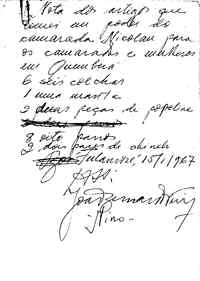 Nota dos artigos que
temos em poder do
camarada Nicolau para
os camaradas e mulheres
em
6 seis colchas
1 uma manta
2 duas peças de popeline
8 oito panos
2 dois pares de chinelo
15/1/1967
Nino